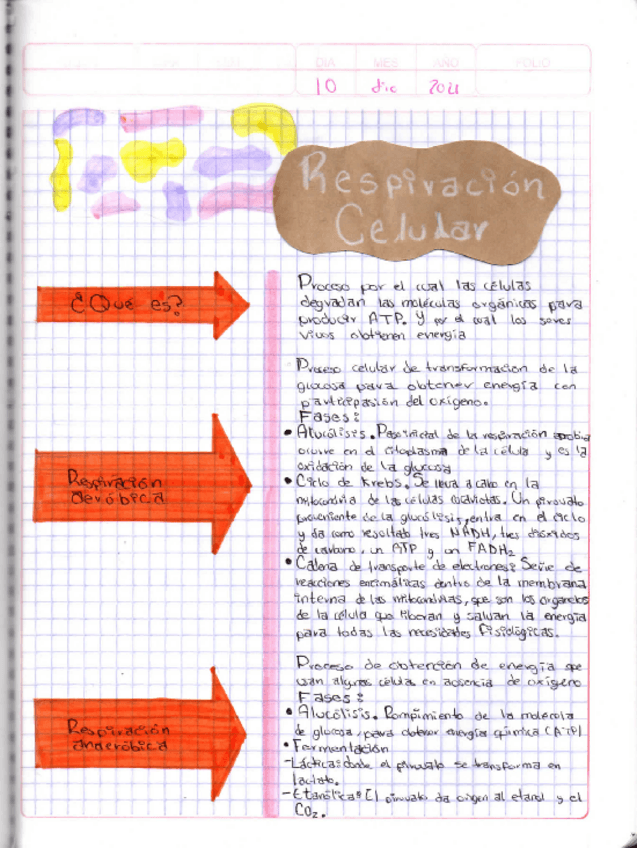 DIA MES AÑO FOLIO
10 dic 2021
Respiración
Celular
¿Que es?
Proceso por el cual las células
degradan las moléculas orgánicas para
producir ATP. Y por el cual los seres
vivos obtienen energía
Respiración
aeróbica
Proceso celular de transformacion de la
glucosa para obtener energía con
participasión del oxígeno.
Fases:
• Glucólisis. Paso inicial de la respiración aerobia
ocurre en el citoplasma de la célula y es la
oxidación de la glucosa
• Ciclo de Krebs. Se lleva a cabo en la
mitocondria de las células eucariotas. Un piruvato
proveniente de la glucólisis, entra en el ciclo
y da como resultado tres NADH, tres dióxidos
de carbono, un ATP y un FADH₂
• Cadena de transporte de electrones: Serie de
reacciones enzimáticas dentro de la membrana
interna de las mitocondrias, que son los organelos
de la célula que liberan y salvan la energía
para todas las necesidades fisiológicas.
Respiración
anaeróbica
Proceso de obtención de energía que
usan algunas célula en ausencia de oxígeno
Fases:
• Glucólisis. Rompimiento de la molécula
de glucosa, para obtener energía química (ATP)
• Fermentación
-Lácticas: donde el piruvato se transforma en
lactato.
-Etanólica: El piruvato da origen al etanol y el
CO₂.